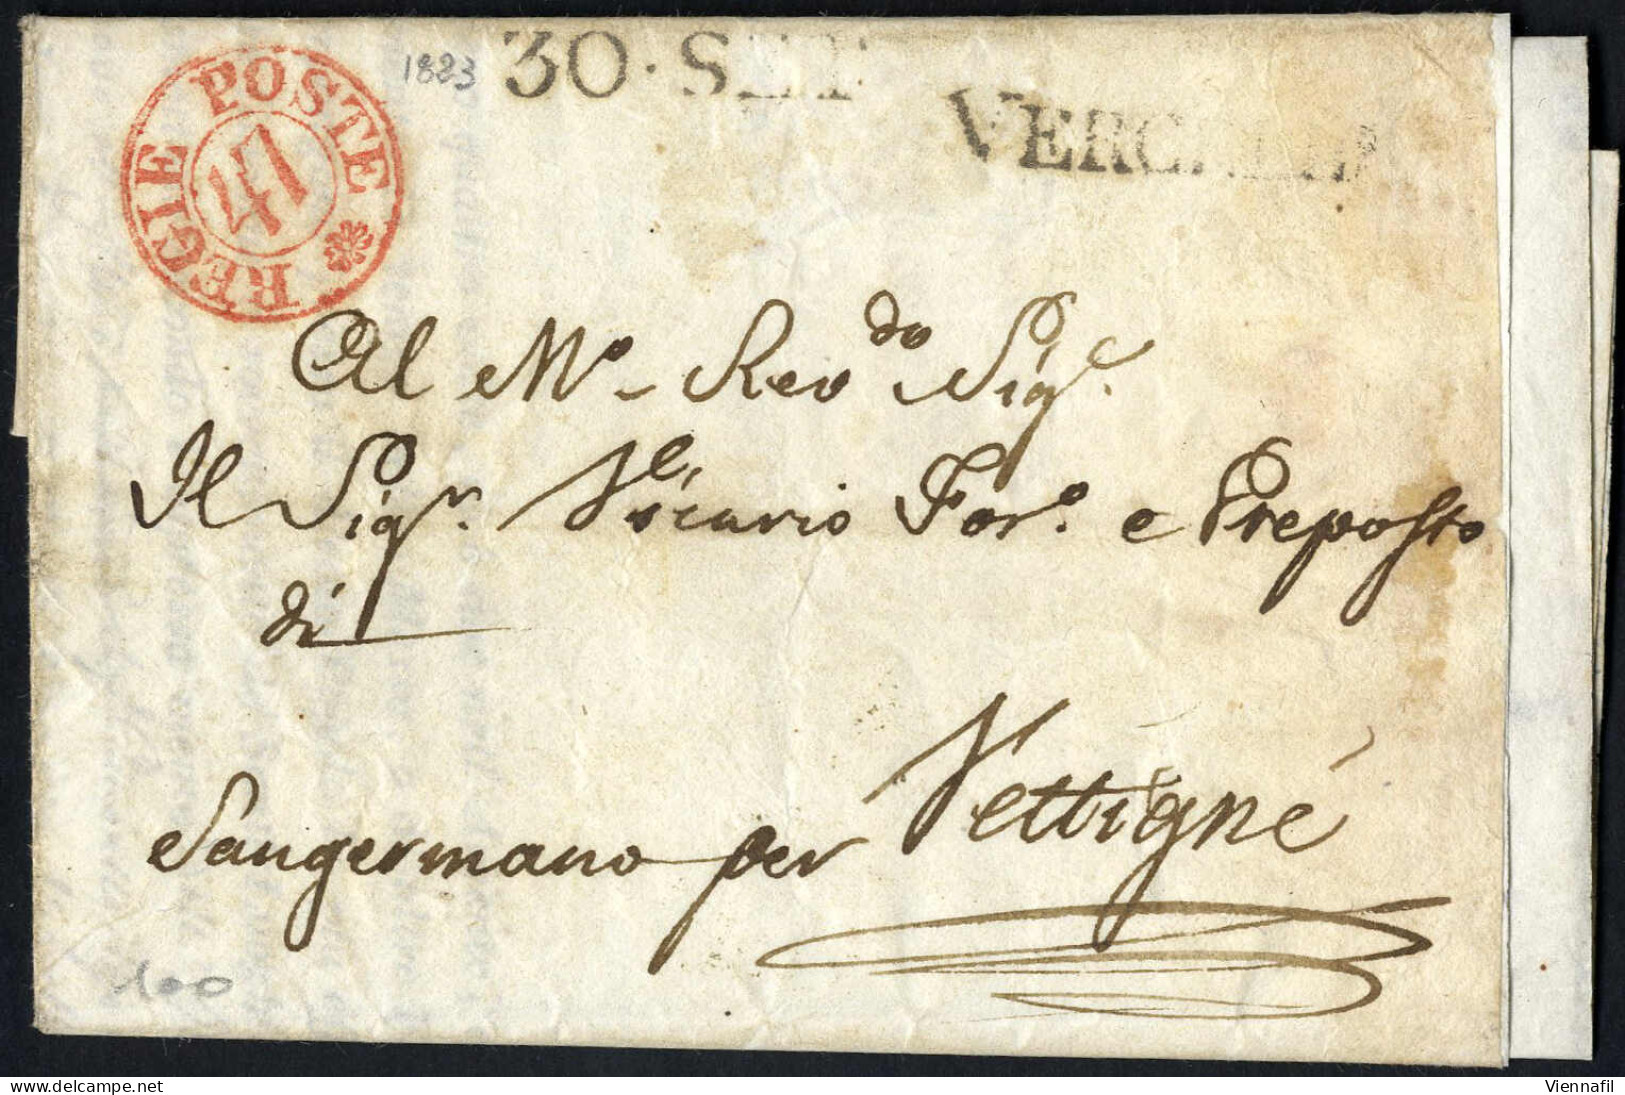 REGIE POSTE
41
1823
30 · SET
VERCELLI
Al M.º Rev.do Sig.e
Il Sig.r Vicario For.º e Preposto
di
Sangermano per Vettigné
100
delcampe.net
Viennafil